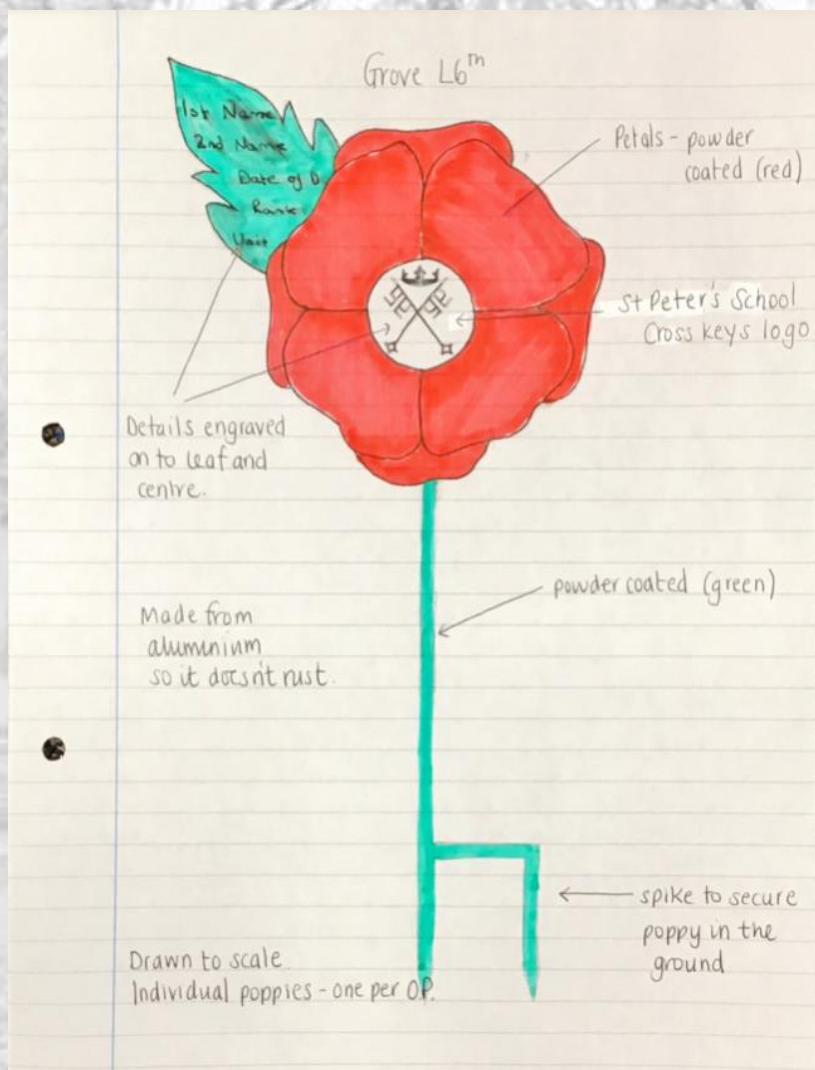 Grove L6th
1st Name
2nd Name
Date of D
Rank
Unit
Petals - powder
coated (red)
St Peter's School
Cross keys logo
Details engraved
on to leaf and
centre.
powder coated (green)
Made from
aluminium
so it doesn't rust.
spike to secure
poppy in the
ground
Drawn to scale
Individual poppies - one per O.P.